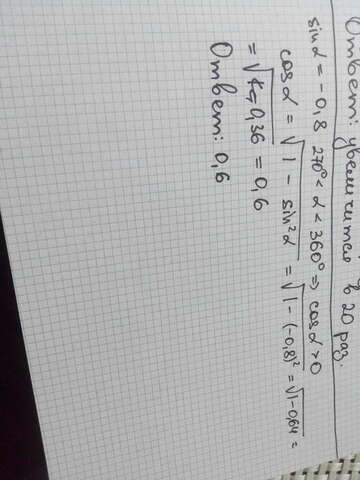 Ответ: увеличится в 20 раз.
sinα = -0,8 270° < α < 360° ⇒ cosα > 0
cosα = √1 - sin²α = √1 - (-0,8)² = √1-0,64 =
= √0,36 = 0,6
Ответ: 0,6